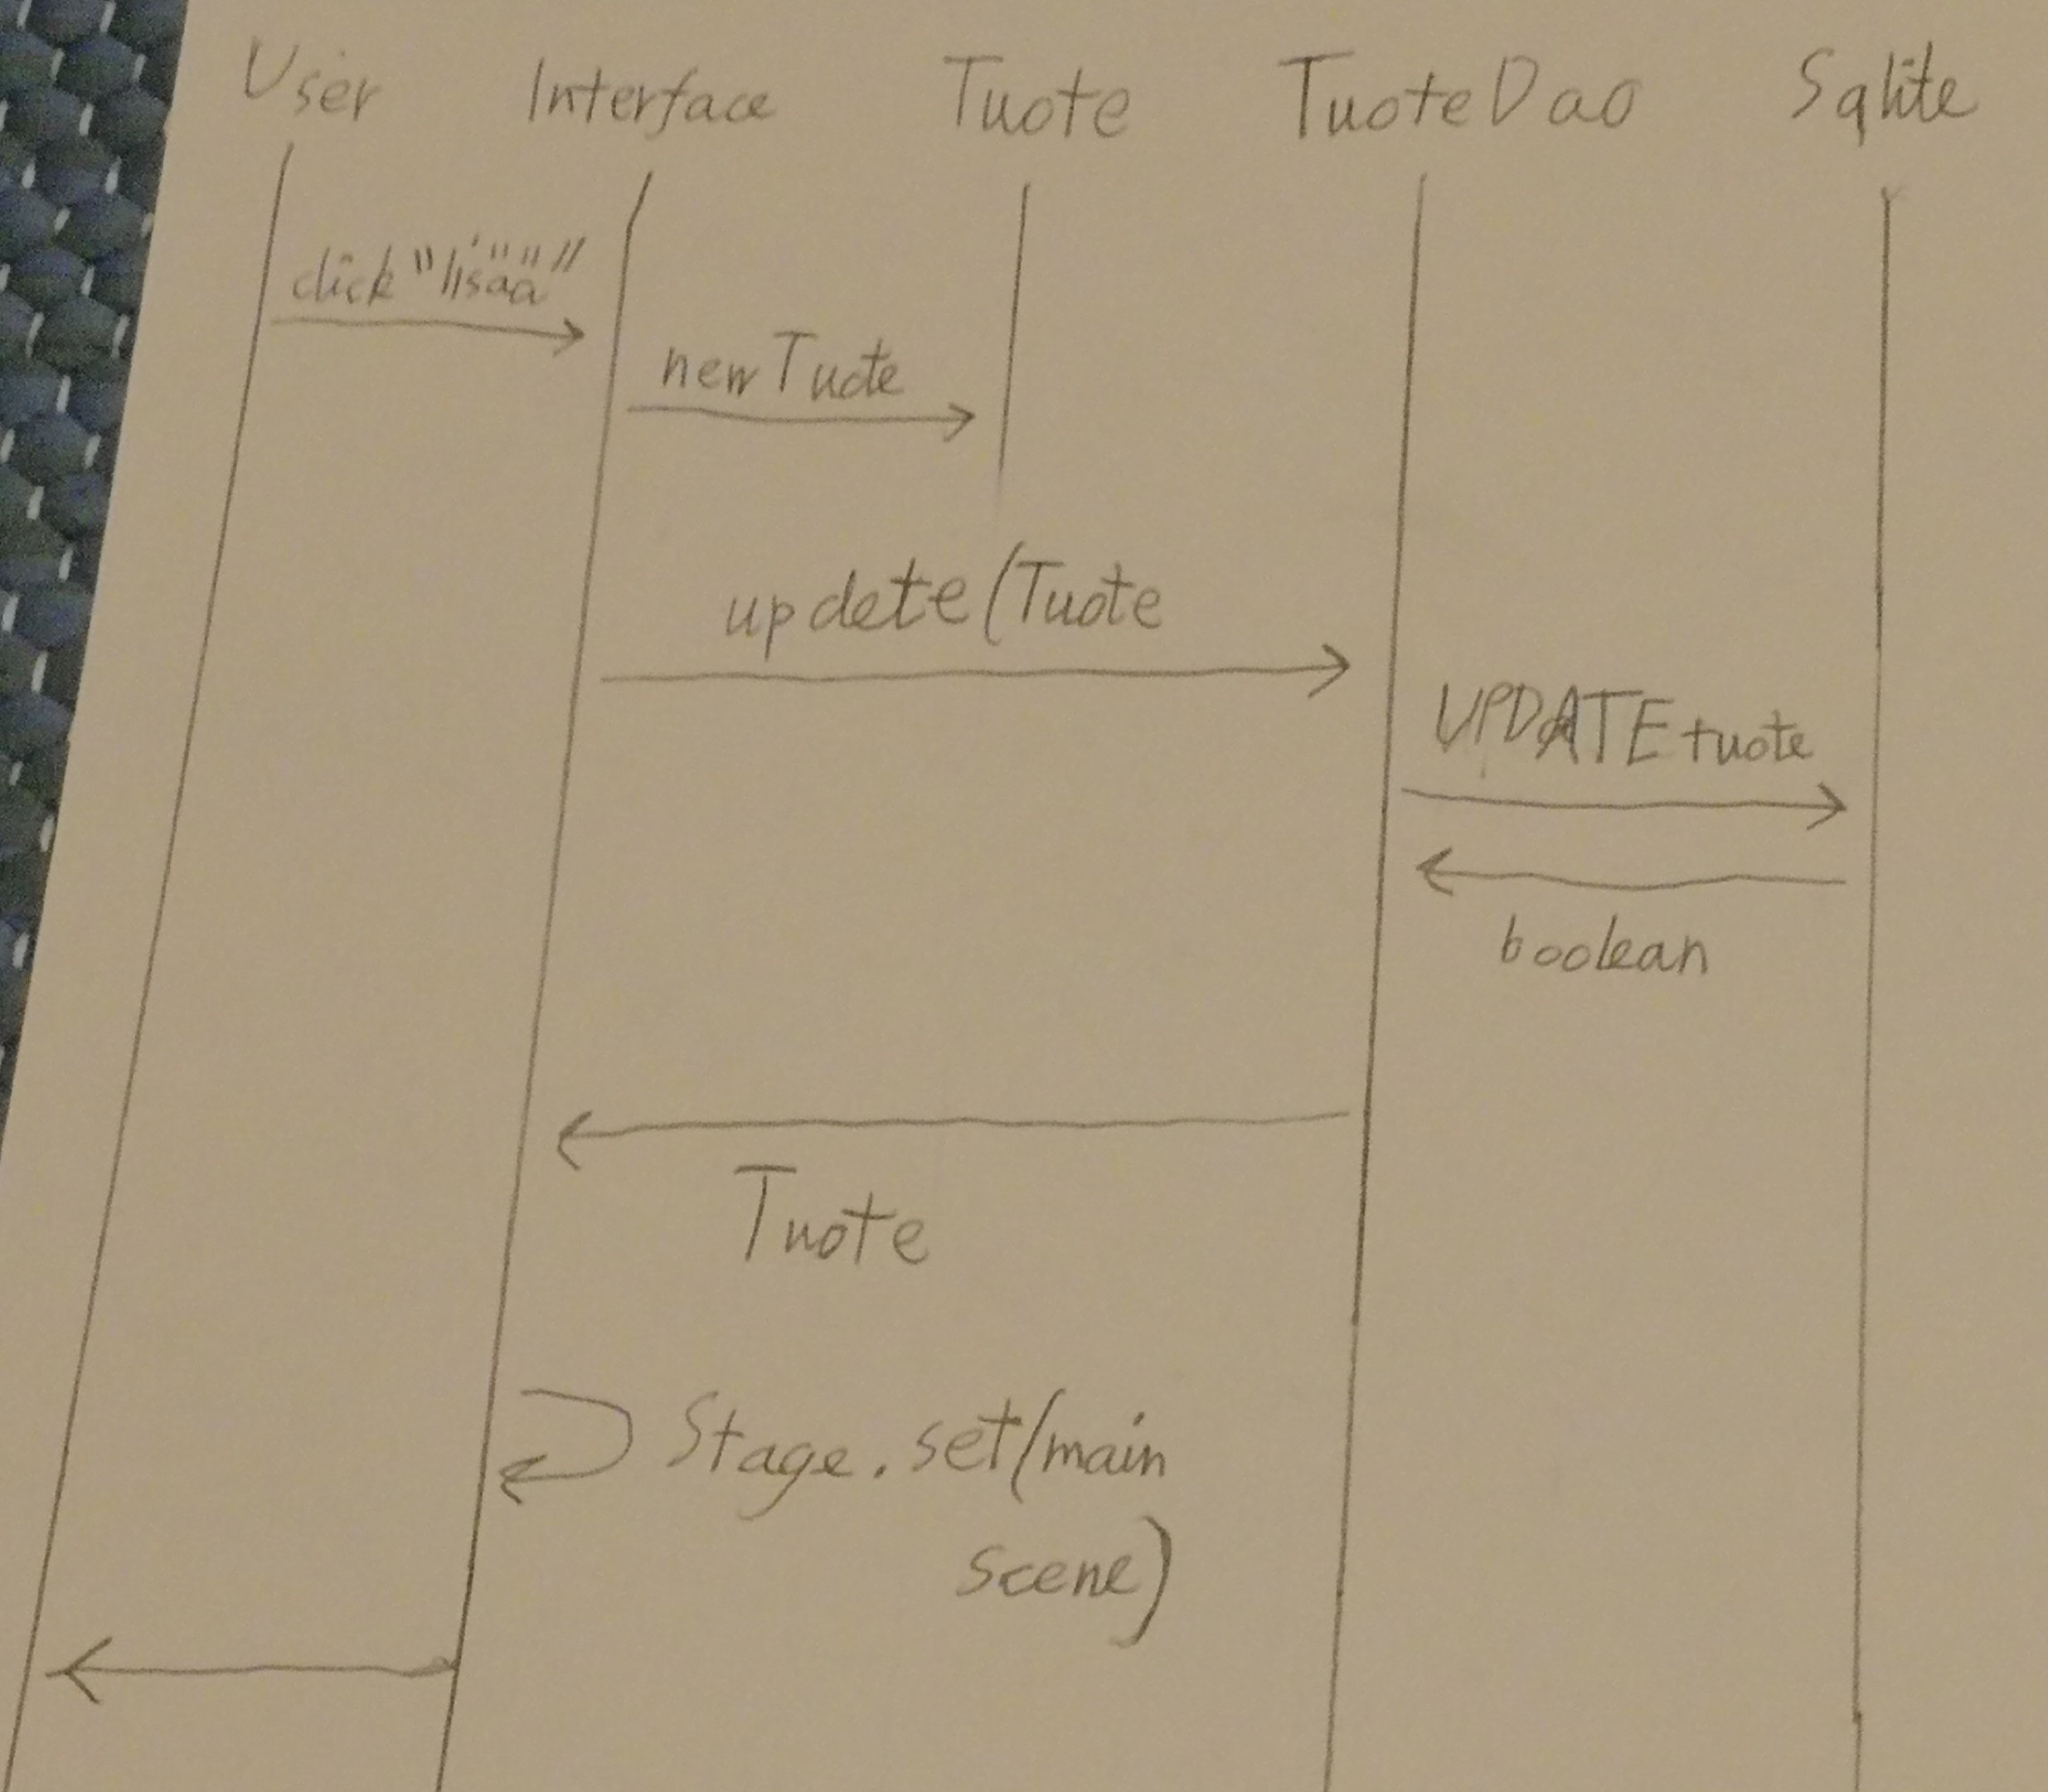 User Interface Tuote TuoteDao Sqlite
click "lisää"
new Tuote
updete(Tuote
UPDATE tuote
boolean
Tuote
Stage.set(main
scene)